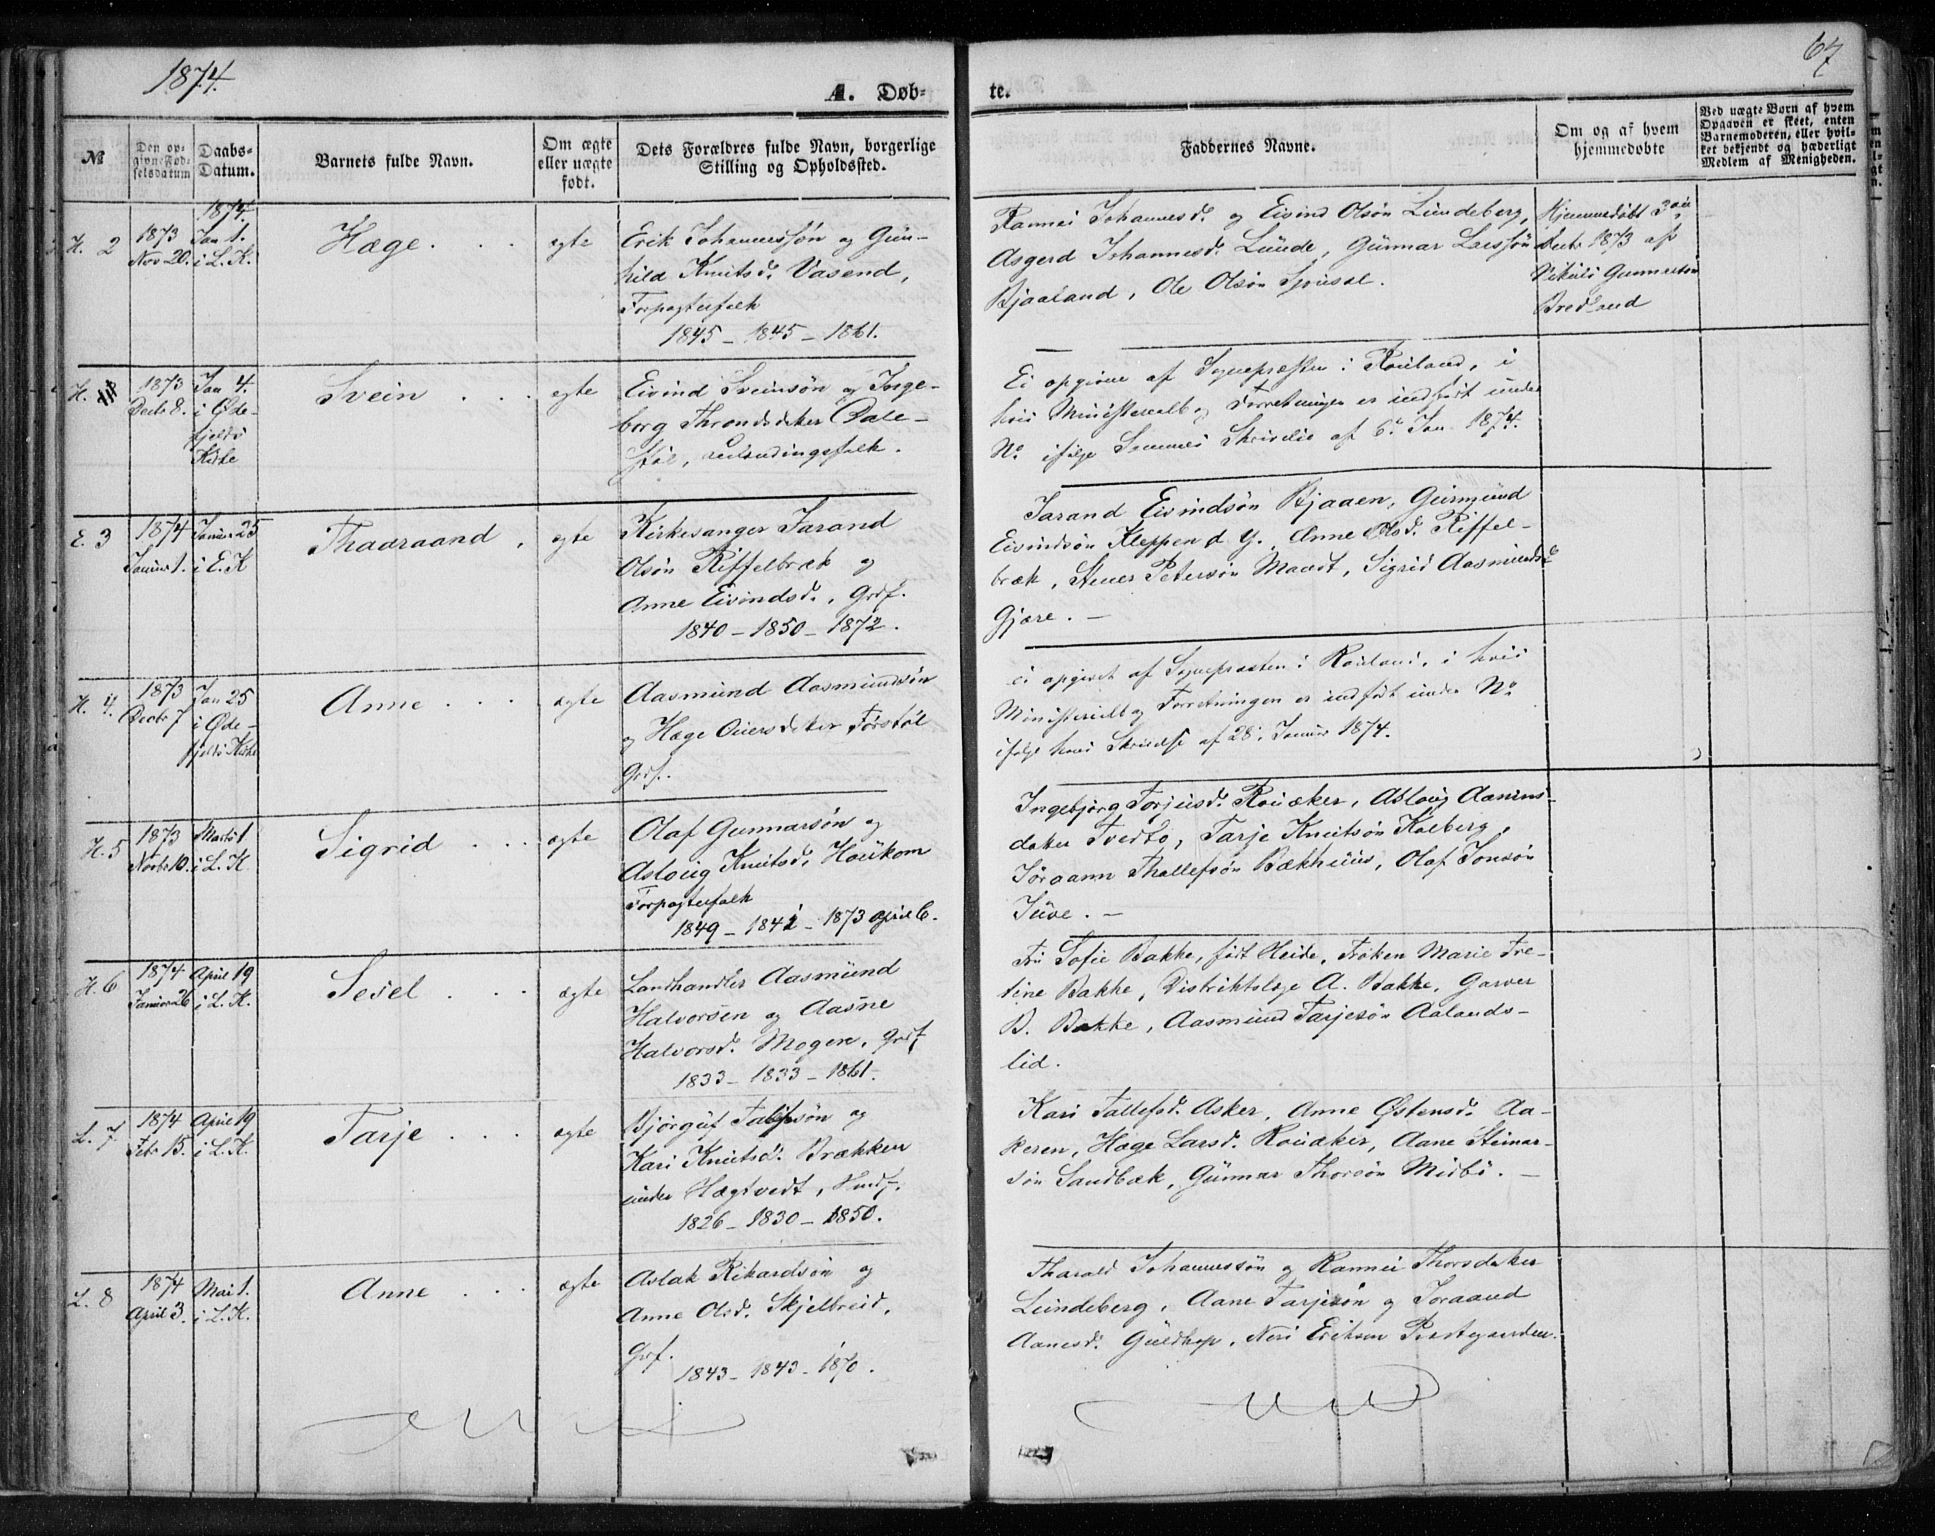 1874.
67
A. Døb-
te.
No
Den op-
givne Fød-
selsdatum
Daabs-
Datum.
Barnets fulde Navn.
Om ægte
eller uægte
født.
Dets Forældres fulde Navn, borgerlige
Stilling og Opholdssted.
Faddernes Navne.
Om og af hvem
hjemmedøbte
Ved uægte Børn af hvem
Opgaven er skeet, enten
Barnemoderen, eller hvil-
ket bekjendt og hæderligt
Medlem af Menigheden.
H. 2
1873
Nov 20.
1874.
Jan 1.
i L. K.
Hæge
ægte
Erik Johannessøn og Gun-
hild Knutsd. Vasend,
Forpagterfolk
1845 - 1845 - 1861.
Rannei Johannesd. og Eivind Olsøn Lundeberg,
Asgerd Johannesd. Lunde, Gunnar Larssøn
Bjaaland, Ole Olsøn
Hjemmedøbt
Decbr 1873 af
Gunnarson
H.
1873
Decbr 8.
Jan 4.
i Øde-
fjelds
Kirke
Svein
ægte
Eivind Sveinsøn og Inge-
borg Thronddatter Dale-
støl,
Ei opgivne af Sognepresten i Rauland, i
hvis Ministerialbog Forretningen er indført under
No ifølge Sammes Skrivelse af 6. Jan. 1874.
E. 3
1874
Januar 1.
Januar 25
i E. K
Thaaraand
ægte
Kirkesanger Tarand
Olsøn Riffelbræk og
Anne Eivindsd., Grdf.
1840 - 1850 - 1872.
Tarand Eivindsøn Bjaaen, Geirmund
Eivindsøn Kleppen d. y., Anne Olsd. Riffel-
bræk, Stener Petersøn Mandt, Sigrid Aasmundsd.
Gjøre. -
H. 4.
1873
Decbr 7
Jan 25
i Øde-
fjelds Kirke
Anne
ægte
Aasmund Aasmundsøn
og Hæge datter Førstøl
Grdf.
Ei opgivet af Sognepresten i Rauland, i hvis
Ministerialbog Forretningen er indført under No
ifølge hans Skrivelse af 28. Januar 1874.
H. 5
1873
Novbr 10.
Marts 1
i L. K
Sigrid
ægte
Olaf Gunnarsøn og
Aslaug Knutsd. Haukom
Forpagterfolk
1849 - 1842 - 1873 april 6.
Ingebjørg Torjusd. Rauaker, Aslaug Aanuns-
datter Tvedto, Tarje Knutsøn Kolberg,
Jøraann Thallefsøn Bækhuus, Olaf Jonsøn
Juve. -
H. 6
1874
Januar 26
April 19
i L. K.
Sesel
ægte
Landhandler Aasmund
Halvorsen og Aasne
Halvorsd. Mogen, Grdf
1833 - 1833 - 1861.
Fru Sofie Bakke, født Heide, Frøken Marie Fre-
tine Bakke, Distriktslæge A. Bakke, Garver
B. Bakke, Aasmund Tarjesøn Aalands-
lid.
L. 7
1874
Febr 15.
April 19
i L. K.
Tarje
ægte
Bjørguf søn og
Kari Knutsd. Brækken
under Hægtvedt, Husf.
1826 - 1830 - 1850.
Kari Tallefsd. Asker, Anne Østensd. Aa-
keren, Hæge Larsd. Rauaker, Aane Steinar-
søn Sandbæk, Gunnar Thorsøn Midbø. -
L. 8
1874
April 3.
Mai 1.
i L. K.
Anne
ægte
Aslak Rikardsøn og
Anne Olsd. Skjelbreid.
Grdf.
1843 - 1843 - 1870.
Tharald Johannessøn og Rannei Thorsdatter
Lundeberg, Aane Tarjesøn og Joraand
Aanesd. Guldhop, Neri Eriksen Prestegaarden.